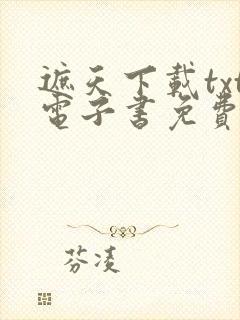 遮天下載txt
電子書免費
芬凌